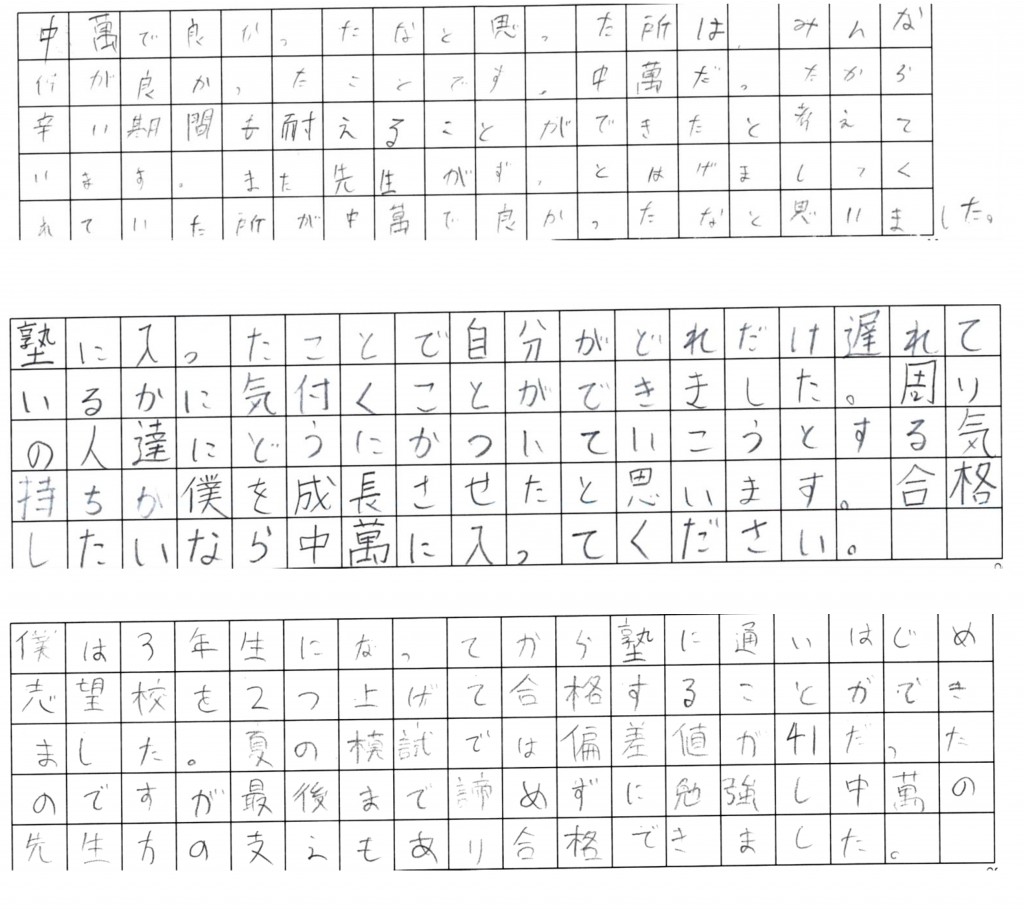 中萬で良かったなと思った所は、みんな
仲が良かったことです。中萬だったから
辛い期間も耐えることができたと考えて
います。また先生がずっとはげましてく
れていた所が中萬で良かったなと思いました。
塾に入ったことで自分がどれだけ遅れて
いるかに気付くことができました。周り
の人達にどうにかついていこうとする気
持ちが僕を成長させたと思います。合格
したいなら中萬に入ってください。
僕は3年生になってから塾に通いはじめ
志望校を2つ上げて合格することができ
ました。夏の模試では偏差値が41だった
のですが最後まで諦めずに勉強し中萬の
先生方の支えもあり合格できました。